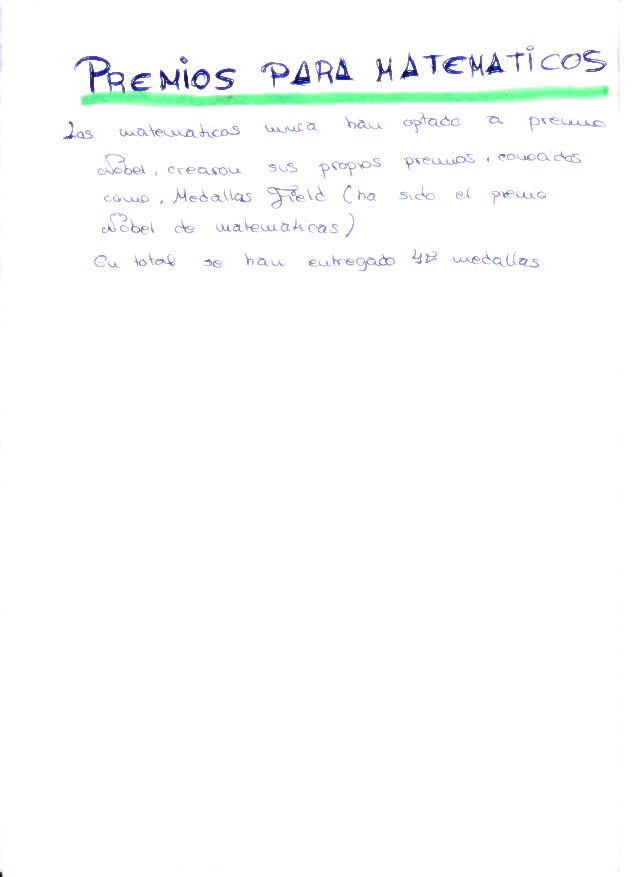 PREMIOS PARA MATEMATICOS
Los matematicos nunca han optado a premio
Nobel, crearon sus propios premios, conocidos
como, Medallas Field (ha sido el premio
Nobel de matematicas)
En total se han entregado medallas